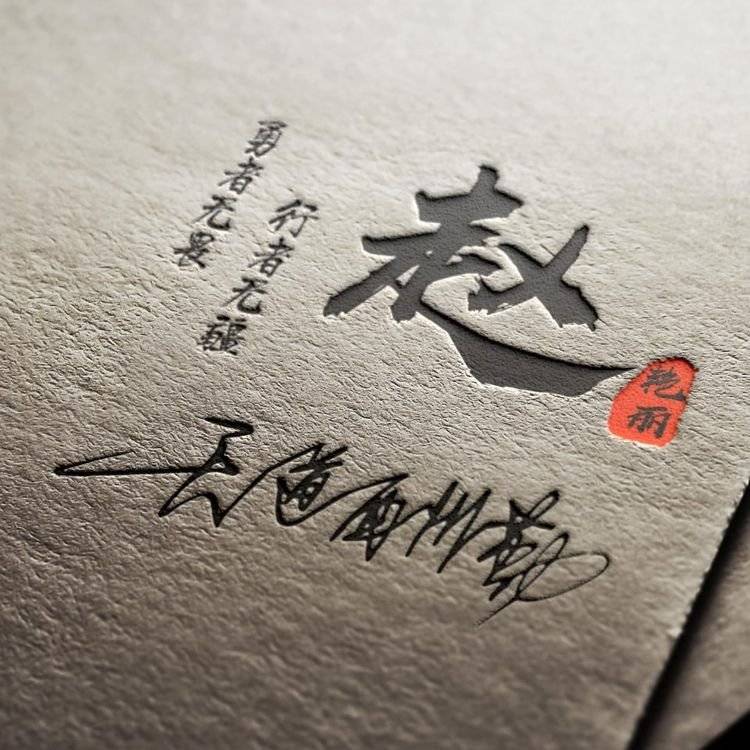 勇者无畏
行者无疆
赵
艳丽
天道酬勤